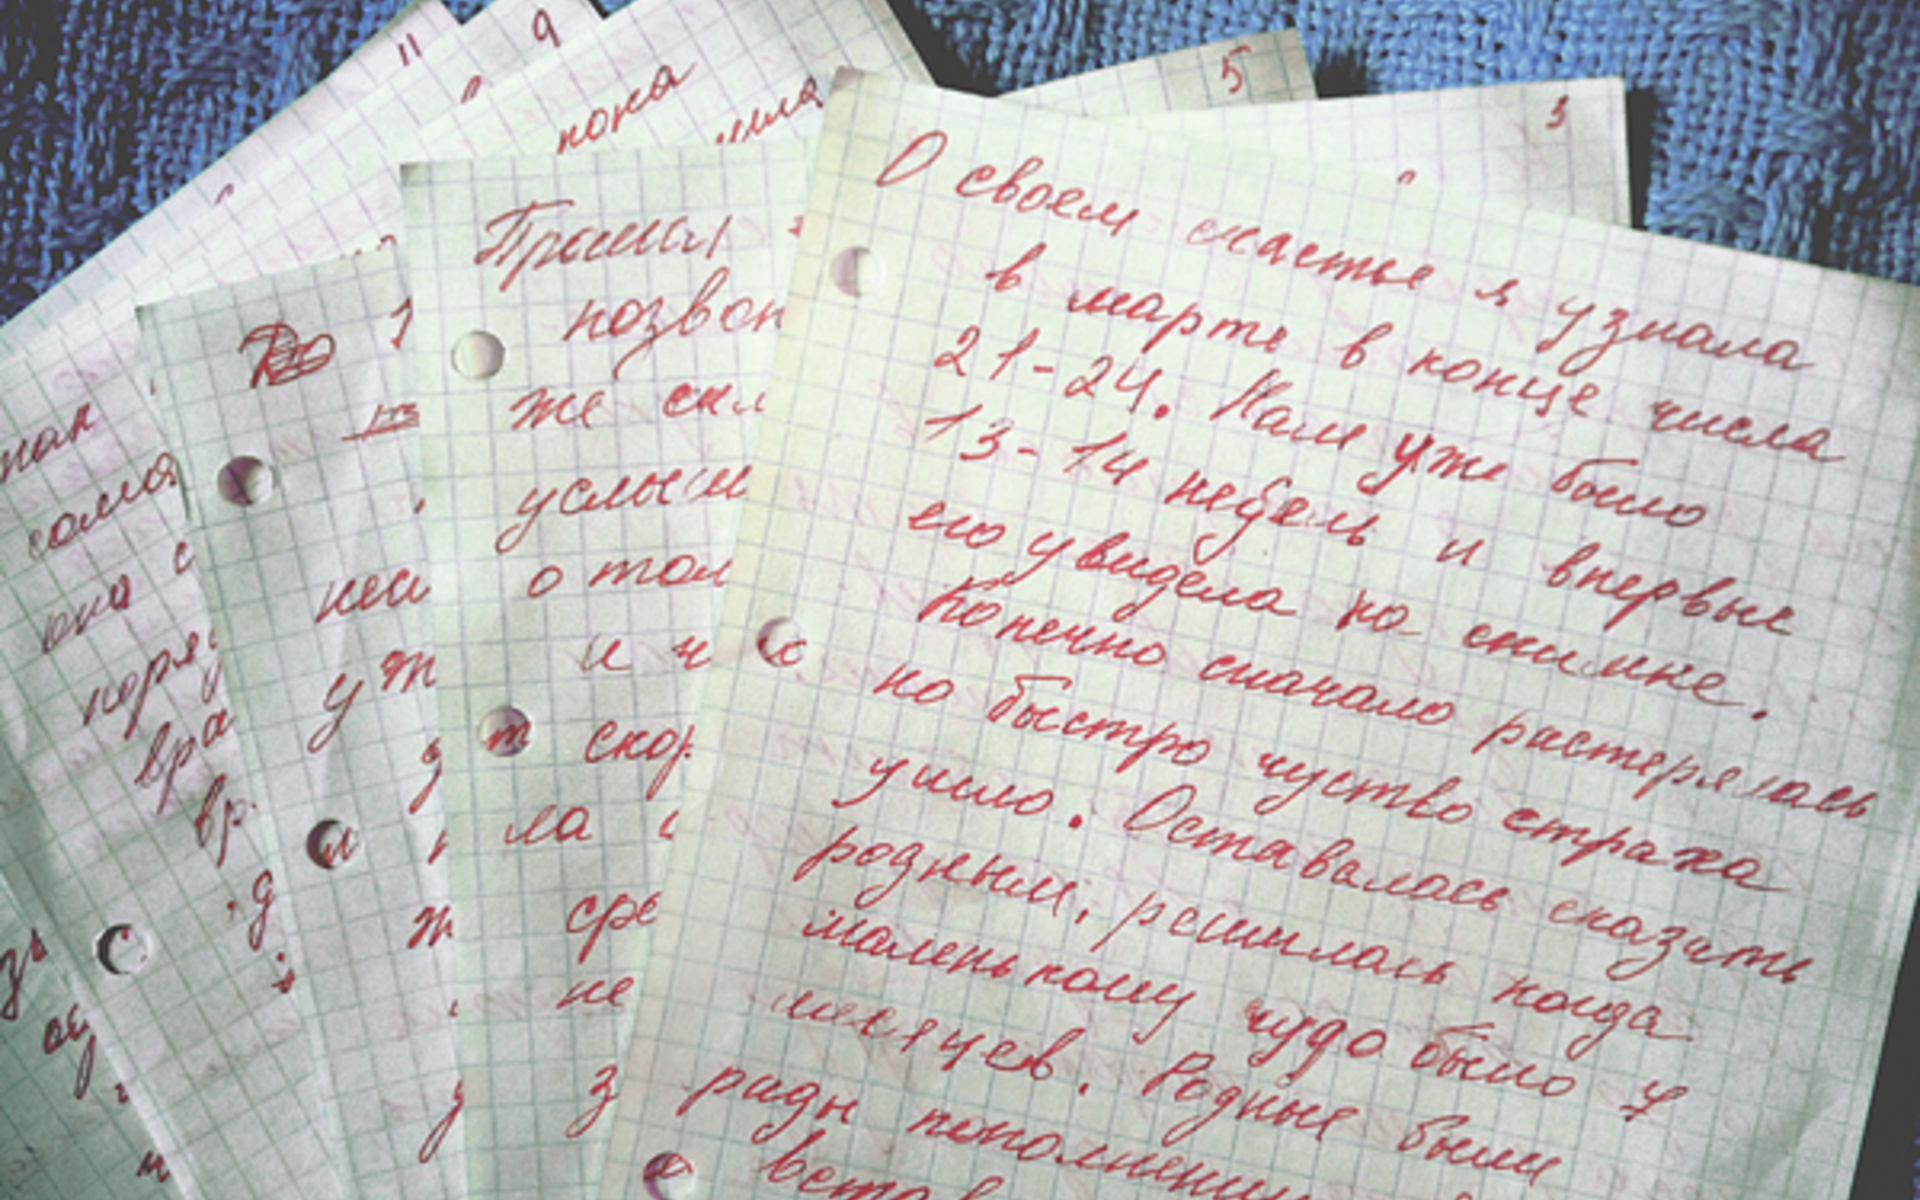 11
9
5
3
пока
шла
О своем счастье я узнала
в марте в конце числа
21-24. Нам уже было
13-14 недель и впервые
его увидела на снимке.
Конечно сначало растерялась
но быстро чуство страха
ушло. Оставалась сказать
родным, решилась когда
маленькому чудо было 4
месяцев. Родные были
рады пополнени
встав
позвон
же скл
услыш
о том
и ч
скор
ла
сре
не
з
До 1
неи
уж
так
сама
она с
поря
вра
вр